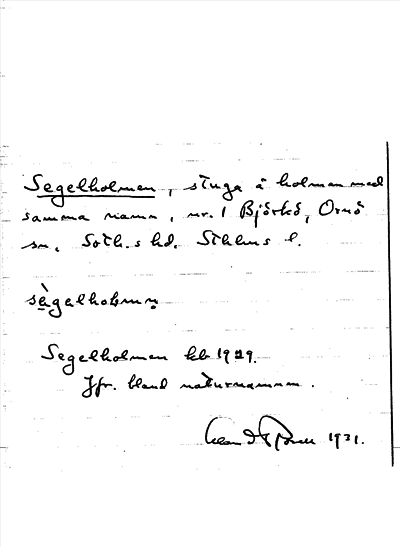 Segelholmen, stuga å holmen med
samma namn, nr. 1 Björkö, Ornö
sn. Soth.s hd. Sthlms l.
sègelholmn
Segelholmen kb 1929.
Jfr. bland naturnamnen.
1931.